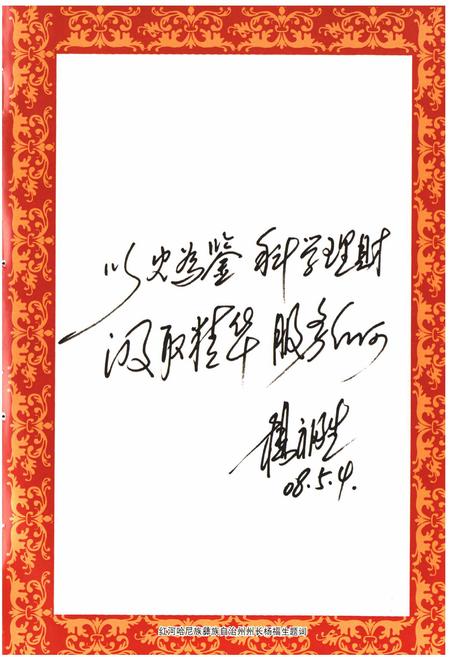 以史为鉴 科学理财
汲取精华 服务红河
杨福生
08.5.4.
红河哈尼族彝族自治州州长杨福生题词